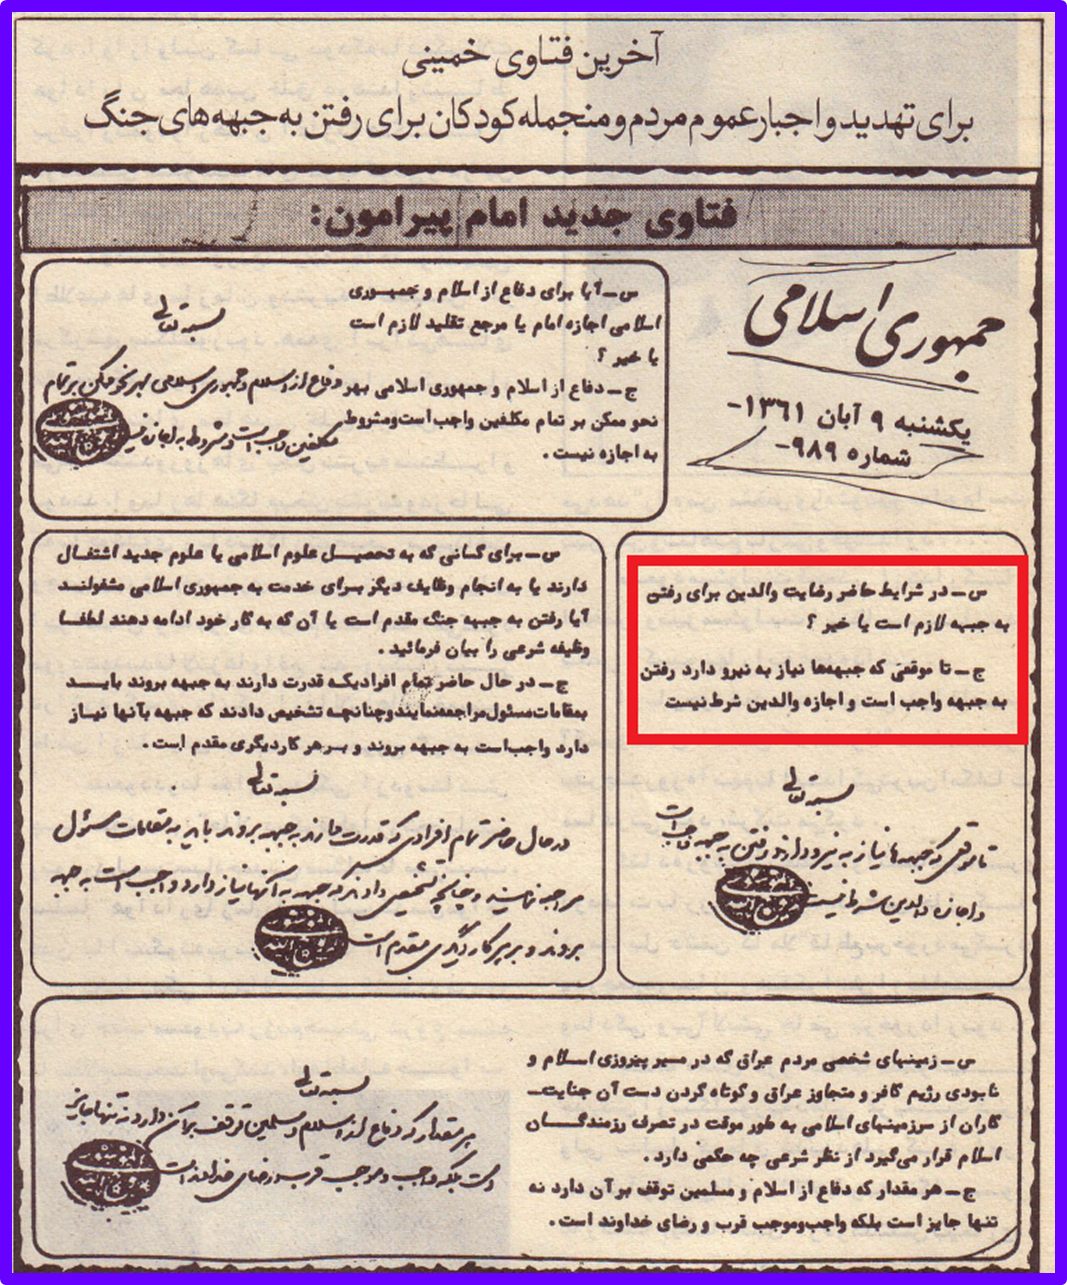 آخرین فتاوی خمینی
برای تهدید و اجبار عموم مردم و منجمله کودکان برای رفتن به جبهه های جنگ
فتاوی جدید امام پیرامون:
جمهوری اسلامی
یکشنبه ۹ آبان ۱۳۶۱-
شماره ۹۸۹-
س ـ آیا برای دفاع از اسلام و جمهوری
اسلامی اجازه امام یا مرجع تقلید لازم است
یا خیر ؟
ج ـ دفاع از اسلام و جمهوری اسلامی بهر
نحو ممکن بر تمام مکلفین واجب است و مشروط
به اجازه نیست .
بسمه تعالی
دفاع از اسلام و جمهوری اسلامی بهر نحو ممکن بر تمام
مکلفین واجب است و مشروط به اجازه نیست
س ـ در شرایط حاضر رضایت والدین برای رفتن
به جبهه لازم است یا خیر ؟
ج ـ تا موقعی که جبهه‌ها نیاز به نیرو دارد رفتن
به جبهه واجب است و اجازه والدین شرط نیست
بسمه تعالی
تا موقعی که جبهه‌ها نیاز به نیرو دارد رفتن به جبهه واجب است
و اجازه والدین شرط نیست
س ـ برای کسانی که به تحصیل علوم اسلامی یا علوم جدید اشتغال
دارند یا به انجام وظایف دیگر برای خدمت به جمهوری اسلامی مشغولند
آیا رفتن به جبهه جنگ مقدم است یا آن که به کار خود ادامه دهند لطفا
وظیفه شرعی را بیان فرمائید .
ج ـ در حال حاضر تمام افرادیکه قدرت دارند به جبهه بروند بایـد
بمقامات مسئول مراجعه نمایند و چنانچه تشخیص دادند که جبهه بآنها نیاز
دارد واجب است به جبهه بروند و بر هر کار دیگری مقدم است .
بسمه تعالی
در حال حاضر تمام افرادی که قدرت دارند به جبهه بروند باید به مقامات مسئول
مراجعه نمایند و چنانچه تشخیص دادند که جبهه به آنها نیاز دارد واجب است به جبهه
بروند و بر هر کار دیگری مقدم است
س ـ زمینهای شخصی مردم عراق که در مسیر پیروزی اسلام و
نابودی رژیم کافر و متجاوز عراق و کوتاه کردن دست آن جنایت‌ـ
کاران از سرزمینهای اسلامی به طور موقت در تصرف رزمندگـان
اسلام قرار می‌گیرد از نظر شرعی چه حکمی دارد .
ج ـ هر مقدار که دفاع از اسلام و مسلمین توقف بر آن دارد نه
تنها جایز است بلکه واجب و موجب قرب و رضای خداوند است .
بسمه تعالی
هر مقدار که دفاع از اسلام و مسلمین توقف بر آن دارد نه تنها جایز
است بلکه واجب و موجب قرب و رضای خداوند است